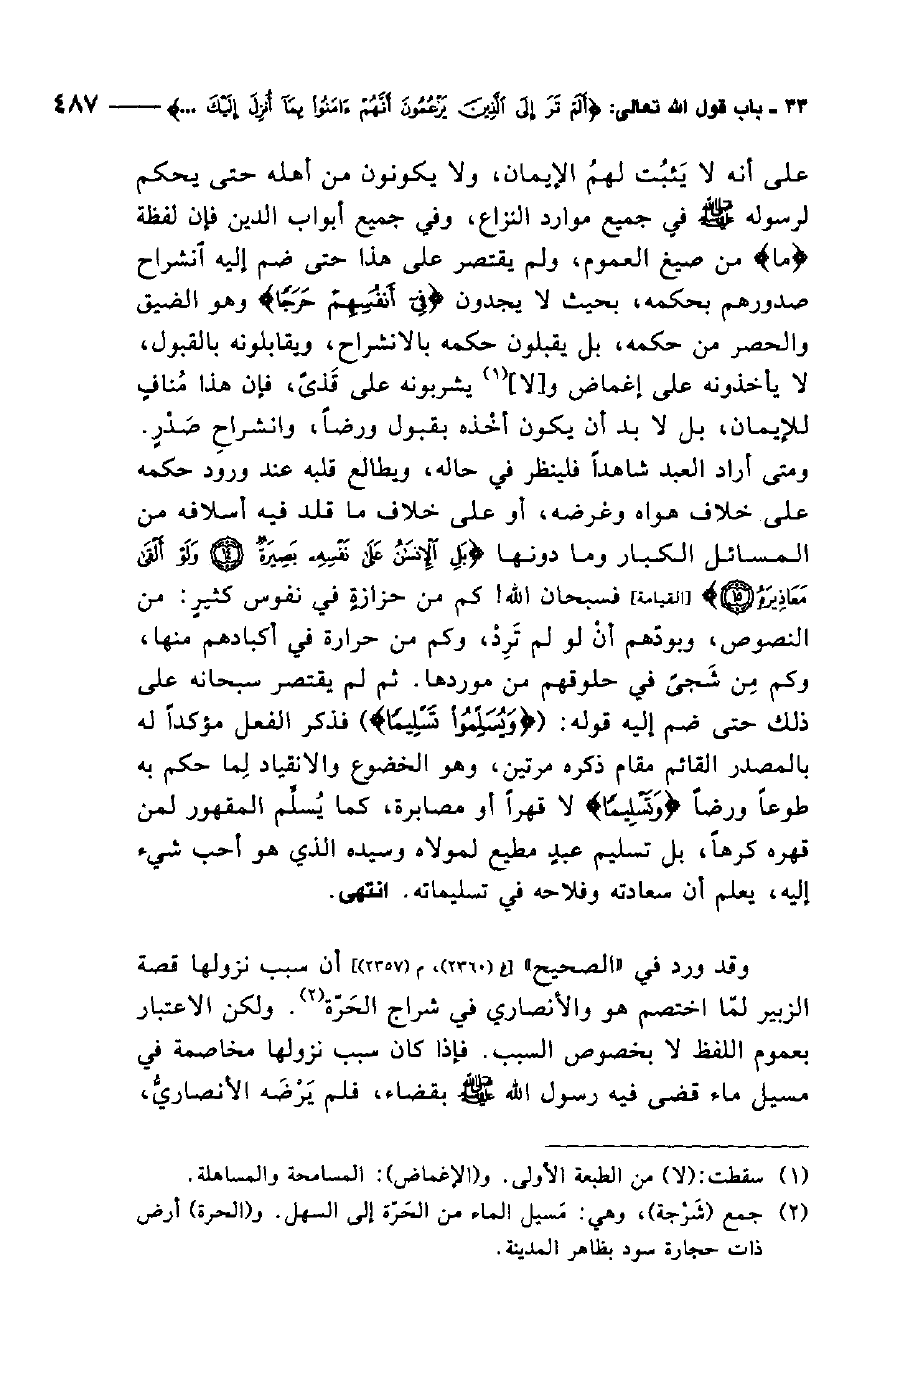 ٣٣ - باب قول الله تعالى: ﴿أَلَمْ تَرَ إِلَى الَّذِينَ يَزْعُمُونَ أَنَّهُمْ ءَامَنُوا بِمَا أُنزِلَ إِلَيْكَ ...﴾ —— ٤٨٧
على أنه لا يَثبُت لهمُ الإيمان، ولا يكونون من أهله حتى يحكم
لرسوله ﷺ في جميع موارد النزاع، وفي جميع أبواب الدين فإن لفظة
﴿ما﴾ من صيغ العموم، ولم يقتصر على هذا حتى ضم إليه أنشراح
صدورهم بحكمه، بحيث لا يجدون ﴿فِي أَنفُسِهِمْ حَرَجًا﴾ وهو الضيق
والحصر من حكمه، بل يقبلون حكمه بالانشراح، ويقابلونه بالقبول،
لا يأخذونه على إغماض و[لا](١) يشربونه على قَذىً، فإن هذا مُنافٍ
للإيمان، بل لا بد أن يكون أخْذه بقبول ورضاً، وانشراحِ صَدْرٍ.
ومتى أراد العبد شاهداً فلينظر في حاله، ويطالع قلبه عند ورود حكمه
على خلاف هواه وغرضه، أو على خلاف ما قلد فيه أسلافه من
المسائل الكبار وما دونها ﴿بَلِ الْإِنسَٰنُ عَلَىٰ نَفْسِهِۦ بَصِيرَةٌ ۝١٤ وَلَوْ أَلْقَىٰ
مَعَاذِيرَهُ ۝١٥﴾ [القيامة] فسبحان الله! كم من حزازةٍ في نفوس كثيرٍ: من
النصوص، وبودّهم أنْ لو لم تَرِدْ، وكم من حرارة في أكبادهم منها،
وكم مِن شَجىً في حلوقهم من موردها. ثم لم يقتصر سبحانه على
ذلك حتى ضم إليه قوله: (﴿وَيُسَلِّمُوا تَسْلِيمًا﴾) فذكر الفعل مؤكداً له
بالمصدر القائم مقام ذكره مرتين، وهو الخضوع والانقياد لِما حكم به
طوعاً ورضاً ﴿وَتَسْلِيمًا﴾ لا قهراً أو مصابرة، كما يُسلَّم المقهور لمن
قهره كرهاً، بل تسليم عبدٍ مطيع لمولاه وسيده الذي هو أحب شيء
إليه، يعلم أن سعادته وفلاحه في تسليماته. انتهى.
وقد ورد في «الصحيح» [خ (٢٣٦٠)، م (٢٣٥٧)] أن سبب نزولها قصة
الزبير لمّا اختصم هو والأنصاري في شراج الحَرّة(٢). ولكن الاعتبار
بعموم اللفظ لا بخصوص السبب. فإذا كان سبب نزولها مخاصمة في
مسيل ماء قضى فيه رسول الله ﷺ بقضاء، فلم يَرْضَه الأنصاريُّ،
(١) سقطت:(لا) من الطبعة الأولى. و(الإغماض): المسامحة والمساهلة.
(٢) جمع (شَرْجة)، وهي: مَسيل الماء من الحَرّة إلى السهل. و(الحرة) أرض
ذات حجارة سود بظاهر المدينة.